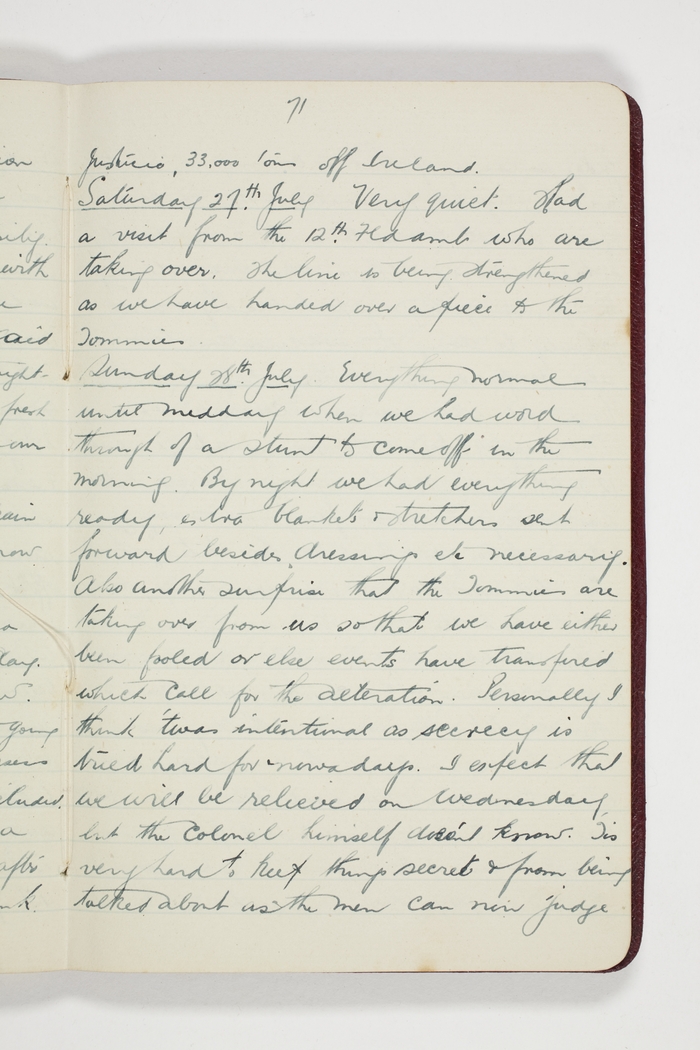 71
Justicia, 33,000 tons off Ireland.
Saturday 27th July Very quiet. Had
a visit from the 12th Fld amb who are
taking over. The line is being strengthened
as we have handed over a piece to the
Tommies.
Sunday 28th July. Everything normal
until midday when we had word
through of a stunt to come off in the
morning. By night we had everything
ready, extra blankets & stretchers sent
forward besides dressings etc necessary.
Also another surprise that the Tommies are
taking over from us so that we have either
been fooled or else events have transpired
which call for the alteration. Personally I
think 'twas intentional as secrecy is
tried hard for nowadays. I expect that
we will be relieved on Wednesday
but the Colonel himself doesn't know. Tis
very hard to keep things secret & from being
talked about as the men can now judge
ion
with
said
right-
fresh
our
now
a
day.
w.
going
a
after